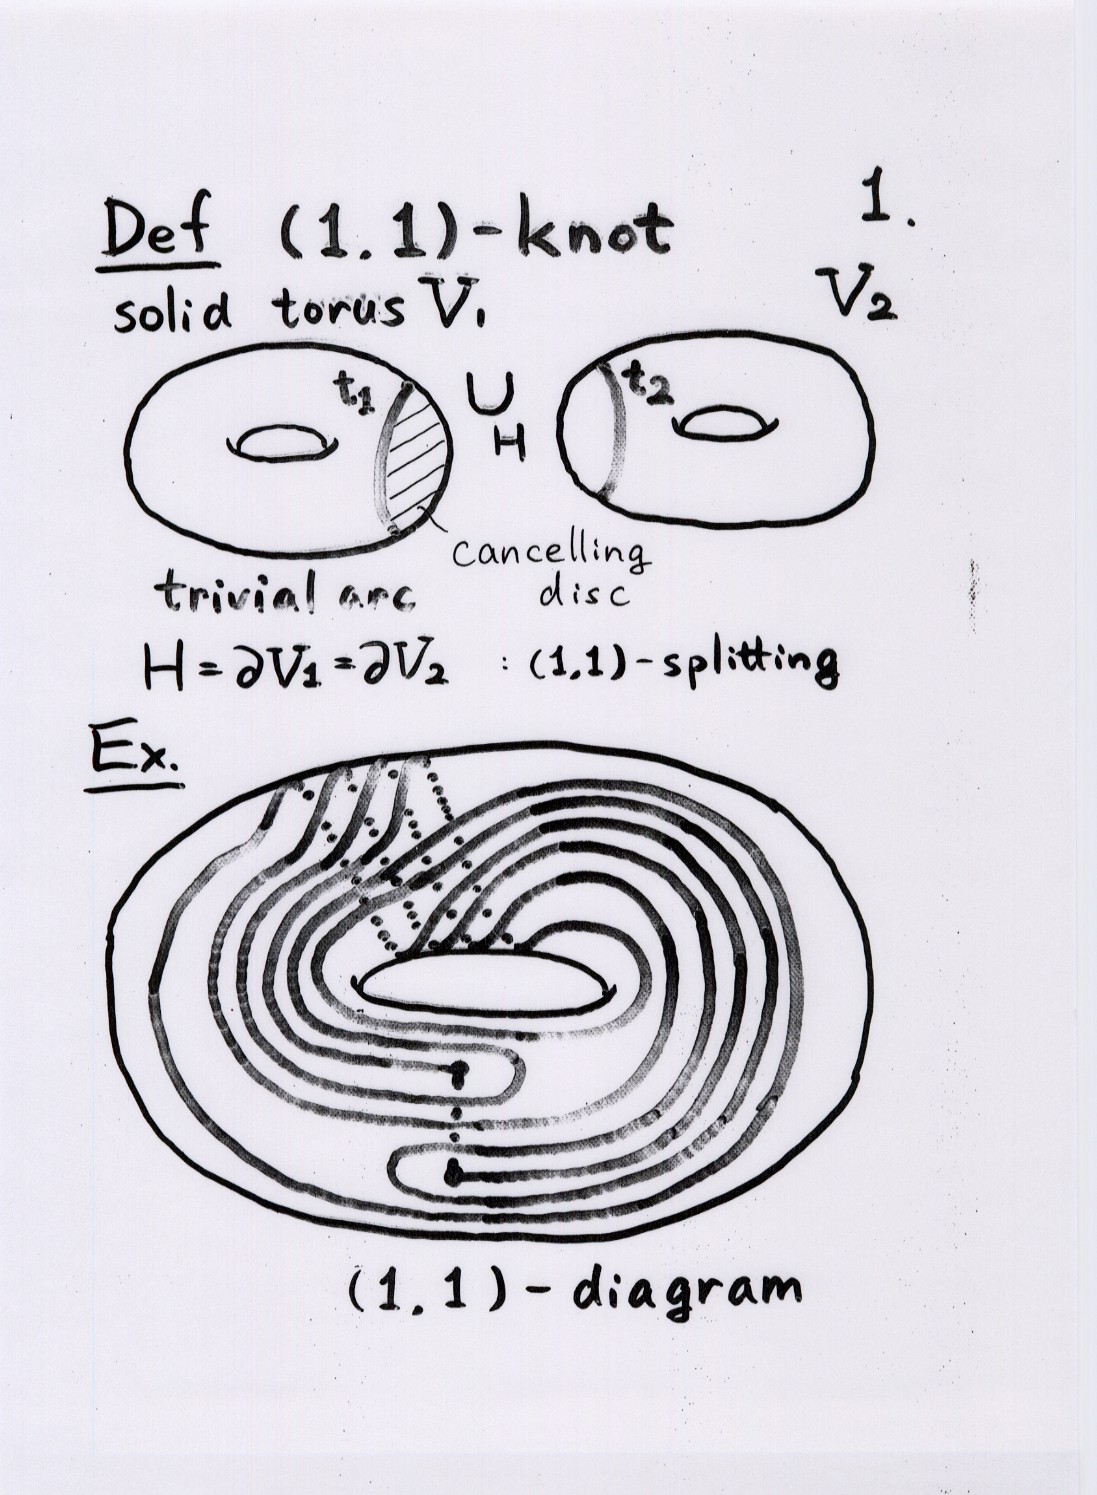 1.
Def (1.1)-knot
solid torus V₁ V₂
t₁ ∪ t₂
H
cancelling
trivial arc disc
H = ∂V₁ = ∂V₂ : (1,1)-splitting
Ex.
(1,1)-diagram